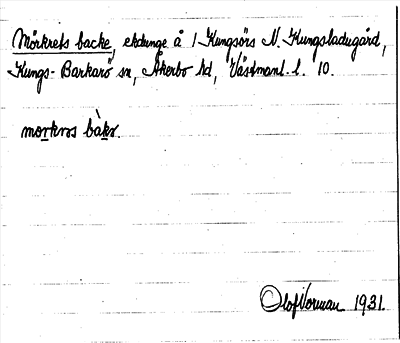 Mörkrets backe, ekdunge å 1 Kungsörs N. Kungsladugård,
Kungs-Barkarö sn, Åkerbo hd, Västmanl. l. 10.
mørkros bàkə.
Olof Norman 1931.